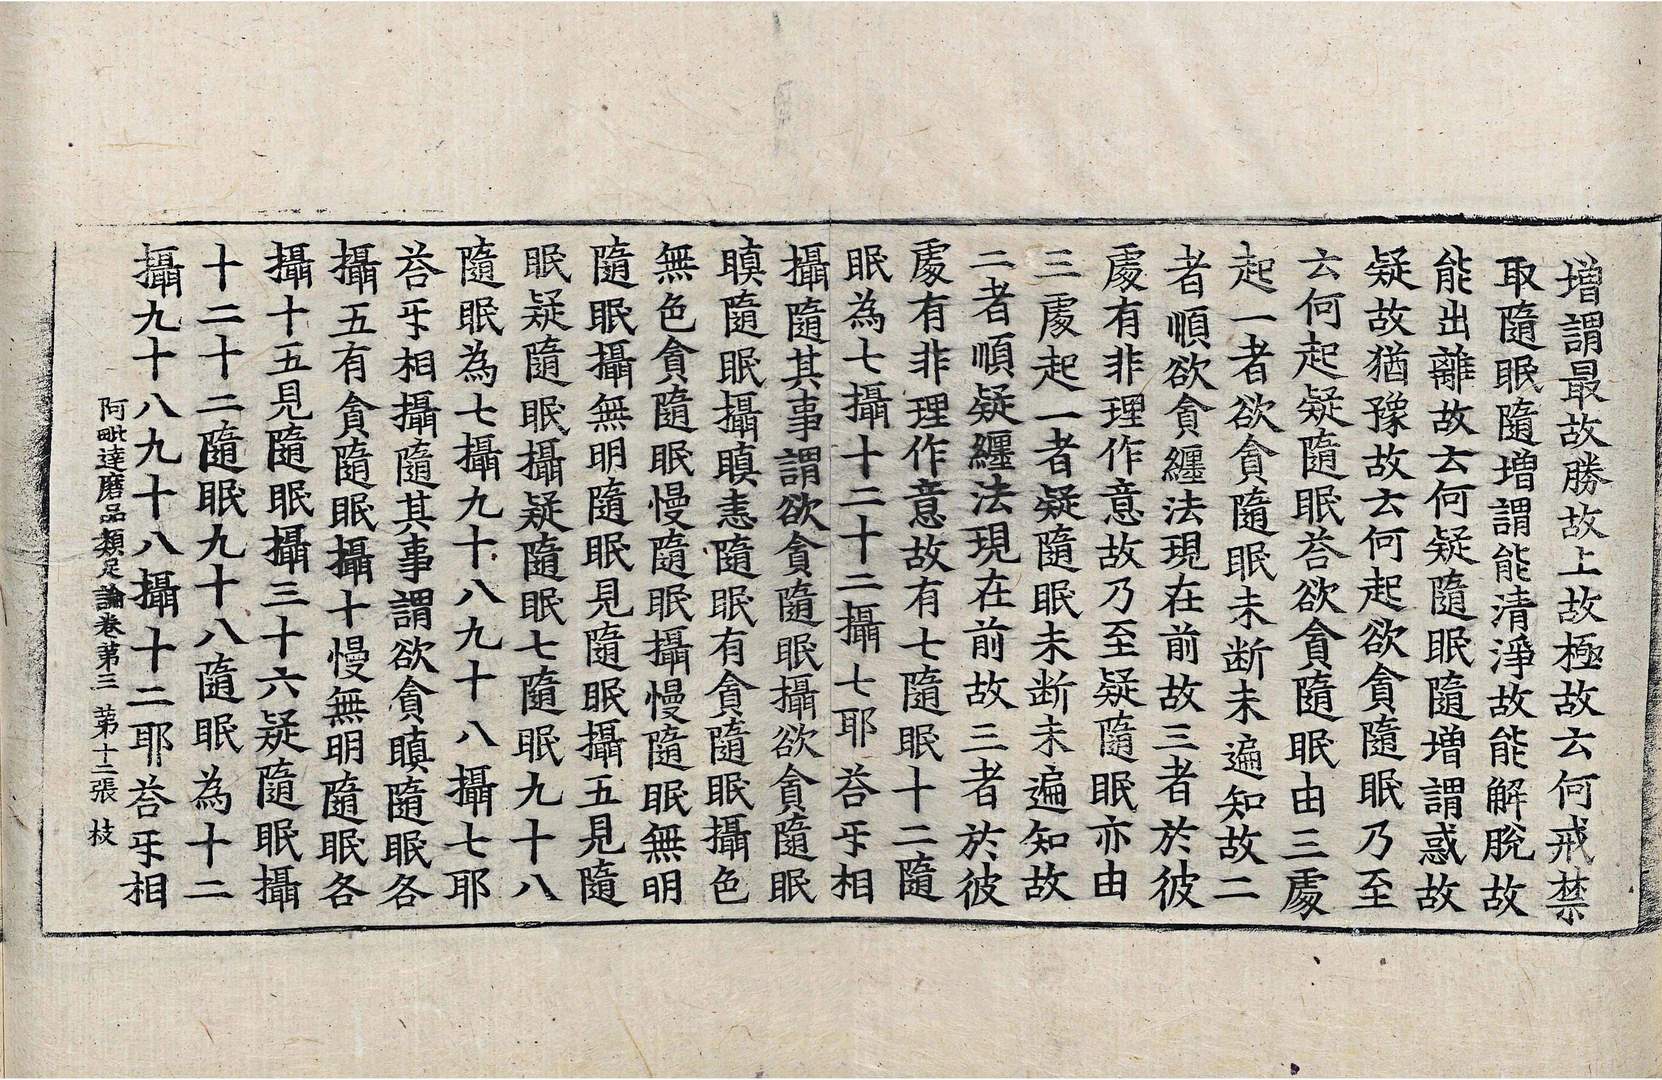 增謂最故勝故上故極故云何戒禁
取隨眠隨增謂能清淨故能解脫故
能出離故云何疑隨眠隨增謂惑故
疑故猶豫故云何起欲貪隨眠乃至
云何起疑隨眠荅欲貪隨眠由三處
起一者欲貪隨眠未断未遍知故二
者順欲貪纏法現在前故三者於彼
處有非理作意故乃至疑隨眠亦由
三處起一者疑隨眠未断未遍知故
二者順疑纏法現在前故三者於彼
處有非理作意故有七隨眠十二隨
眠為七攝十二十二攝七耶荅㸦相
攝隨其事謂欲貪隨眠攝欲貪隨眠
瞋隨眠攝瞋恚隨眠有貪隨眠攝色
無色貪隨眠慢隨眠攝慢隨眠無明
隨眠攝無明隨眠見隨眠攝五見隨
眠疑隨眠攝疑隨眠七隨眠九十八
隨眠為七攝九十八九十八攝七耶
荅㸦相攝隨其事謂欲貪瞋隨眠各
攝五有貪隨眠攝十慢無明隨眠各
攝十五見隨眠攝三十六疑隨眠攝
十二十二隨眠九十八隨眠為十二
攝九十八九十八攝十二耶荅㸦相
阿毗達磨品類足論卷苐三 苐十二張 枝